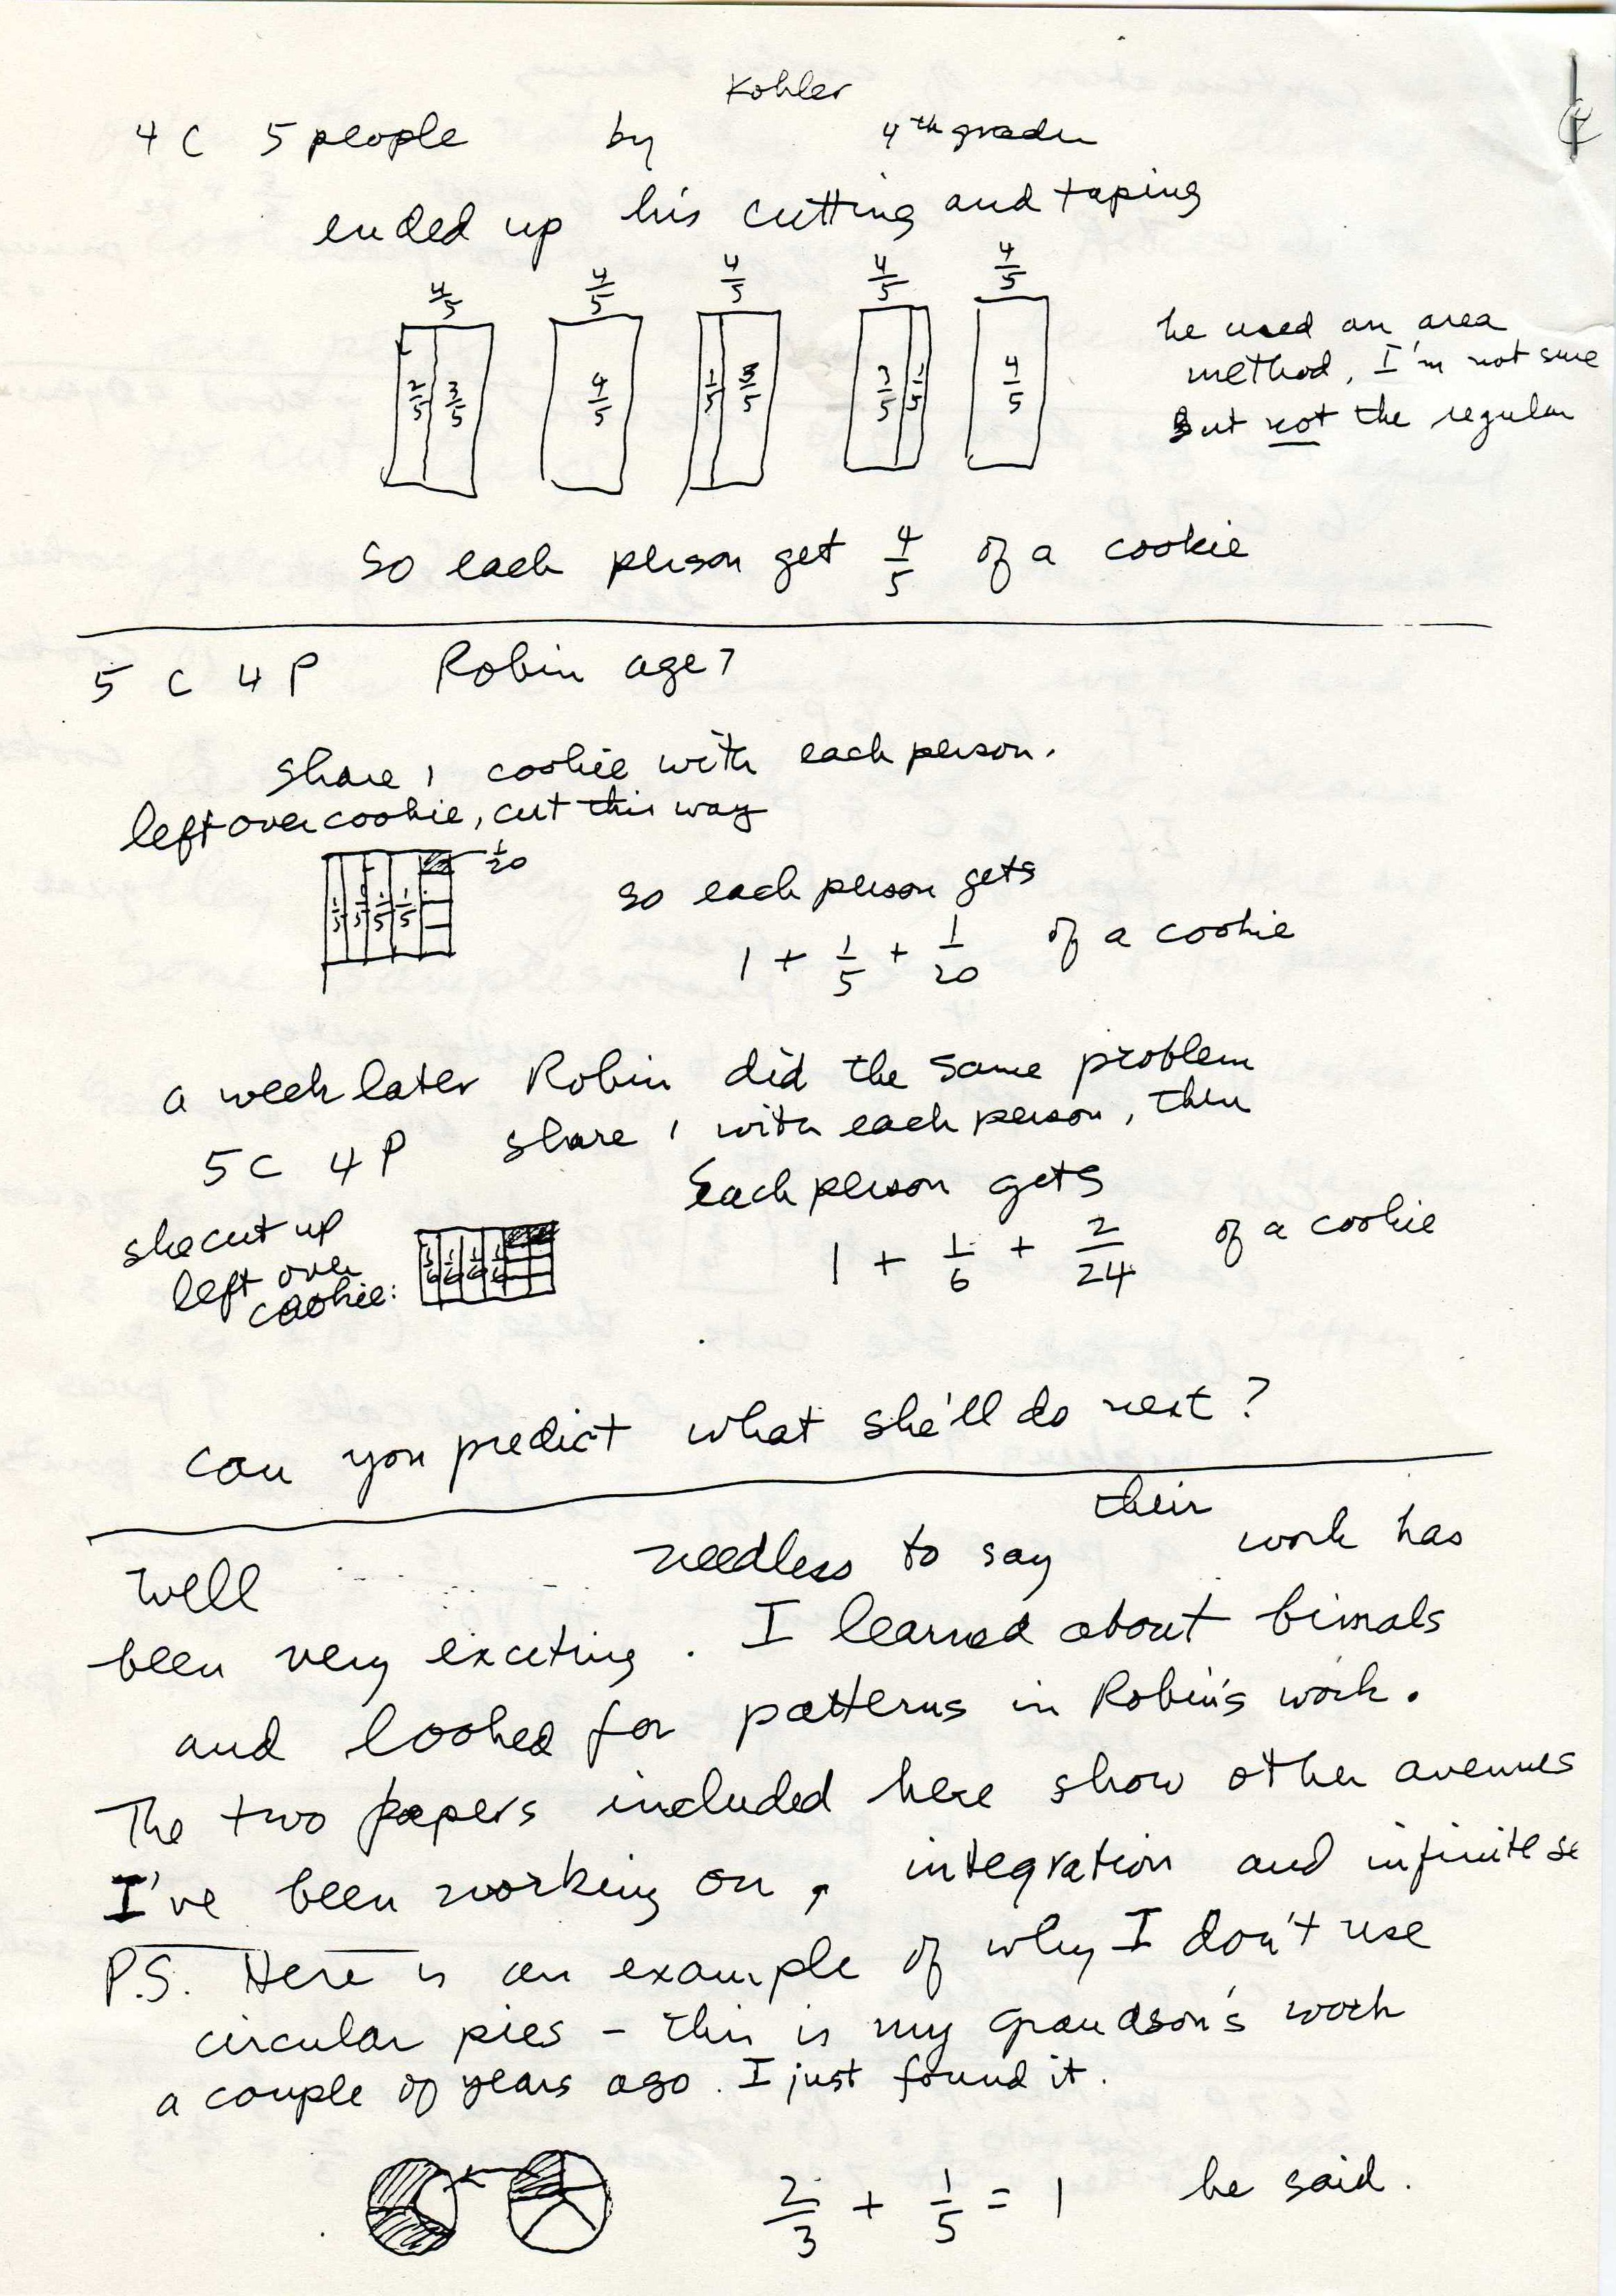 Kohler
4 C 5 people by 4th grader
ended up his cutting and taping
4/5 4/5 4/5 4/5 4/5
2/5 3/5 4/5 1/5 3/5 3/5 1/5 4/5
he used an area
method, I'm not sure
But not the regular
so each person get 4/5 of a cookie
5 C 4 P Robin age 7
share 1 cookie with each person.
left over cookie, cut this way
1/5 1/5 1/5 1/5 1/20
so each person gets
1 + 1/5 + 1/20 of a cookie
a week later Robin did the same problem
5C 4P share 1 with each person, then
Each person gets
she cut up
left over
cookie:
1/6 1/6 1/6 1/6
1 + 1/6 + 2/24 of a cookie
can you predict what she'll do next?
Well needless to say their work has
been very exciting. I learned about bimals
and looked for patterns in Robin's work.
The two papers included here show other avenues
I've been working on, integration and infinite se
P.S. Here is an example of why I don't use
circular pies - this is my grandson's work
a couple of years ago. I just found it.
2/3 + 1/5 = 1 he said.